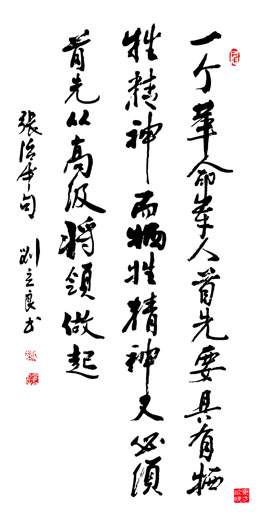 一个革命军人首先要具有牺
牲精神而牺牲精神又必须
首先从高级将领做起
張治中句
刘立良书